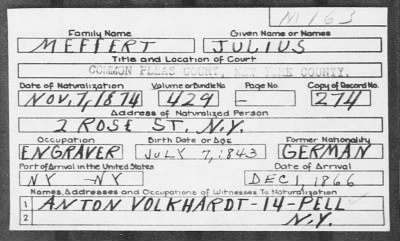 M 163
Family Name Given Name or Names
MEFFERT JULIUS
Title and Location of Court
COMMON PLEAS COURT, NEW YORK COUNTY.
Date of Naturalization Volume or Bundle No. Page No. Copy of Record No.
NOV, 7, 1874 429 – 274
Address of Naturalized Person
2 ROSE ST. N.Y.
Occupation Birth Date or Age Former Nationality
ENGRAVER JULY 7, 1843 GERMAN
Port of Arrival in the United States Date of Arrival
NY - NY DEC 1, 1866
Names, Addresses and Occupations of Witnesses To Naturalization
1 ANTON VOLKHARDT-14-PELL
2 N.Y.